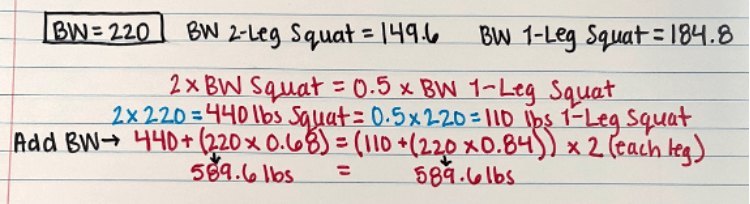 BW = 220 BW 2-Leg Squat = 149.6 BW 1-Leg Squat = 184.8
2 x BW Squat = 0.5 x BW 1-Leg Squat
2 x 220 = 440 lbs Squat = 0.5 x 220 = 110 lbs 1-Leg Squat
Add BW → 440 + (220 x 0.68) = (110 + (220 x 0.84)) x 2 (each leg)
589.6 lbs = 589.6 lbs